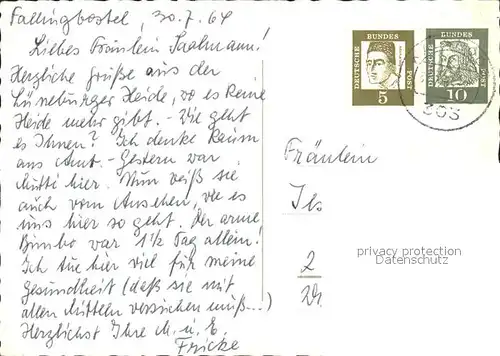 Fallingbostel, 30.7.64
Liebes Fräulein Saalmann!
Herzliche Grüße aus der
Lüneburger Heide, wo es keine
Heide mehr gibt. - Wie geht
es Ihnen? Ich denke kaum
ans Amt. - Gestern war
Mutti hier. Nun weiß sie
auch vom Ansehen, wie es
uns hier so geht. Der arme
Bimbo war 1½ Tag allein!
Ich tue hier viel für meine
Gesundheit (daß sie mit
allen Mitteln versuchen muß...)
Herzlichst Ihre M. u. E.
Fricke
DEUTSCHE BUNDES POST
5
DEUTSCHE BUNDES POST
10
303
Fräulein
Ils
2
privacy protection
Datenschutz